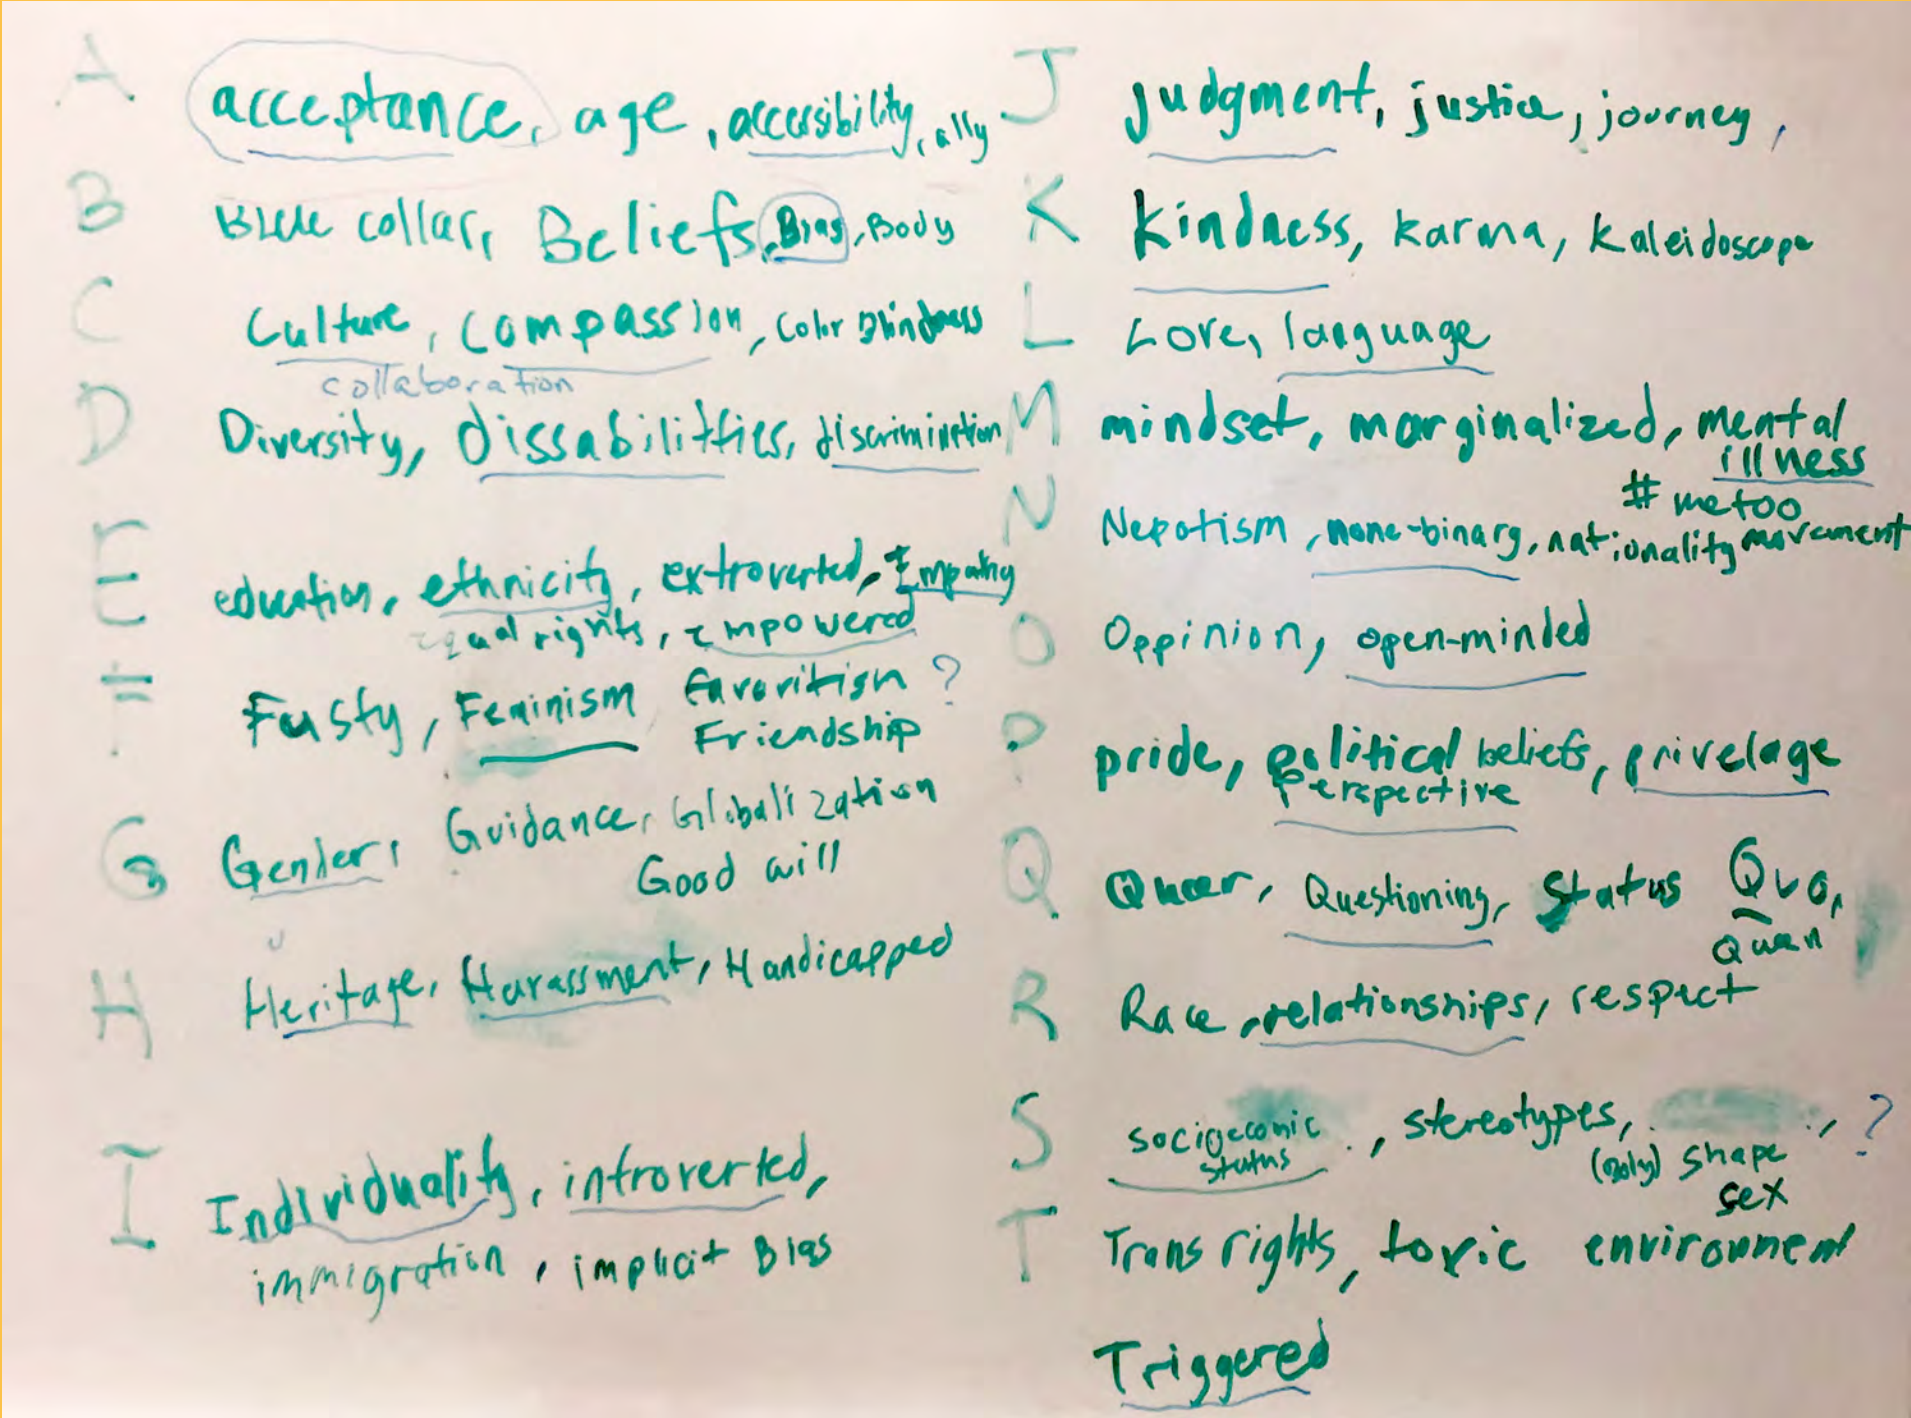 A acceptance, age, accessibility, ally
B Blue collar, Beliefs, Bias, Body
C Culture, compassion, Color Blindness
collaboration
D Diversity, dissabilitties, discrimination
E education, ethnicity, extroverted, Empathy
Equal rights, Empowered
F Fusty, Feminism, favoritism ?
Friendship
G Gender, Guidance, Globalization
Good will
H Heritage, Harassment, Handicapped
I Individuality, introverted,
immigration, implicit Bias
J Judgment, justice, journey,
K kindness, karma, kaleidoscope
L Love, language
M mindset, marginalized, mental
illness
# metoo
movement
N Nepotism, none-binary, nationality
O Oppinion, open-minded
P pride, political beliefs, privelage
perspective
Q Queer, Questioning, Status Quo,
R Race, relationships, respect
S socioeconic, stereotypes, , ?
status
shape
sex
T Trans rights, toxic environment
Triggered